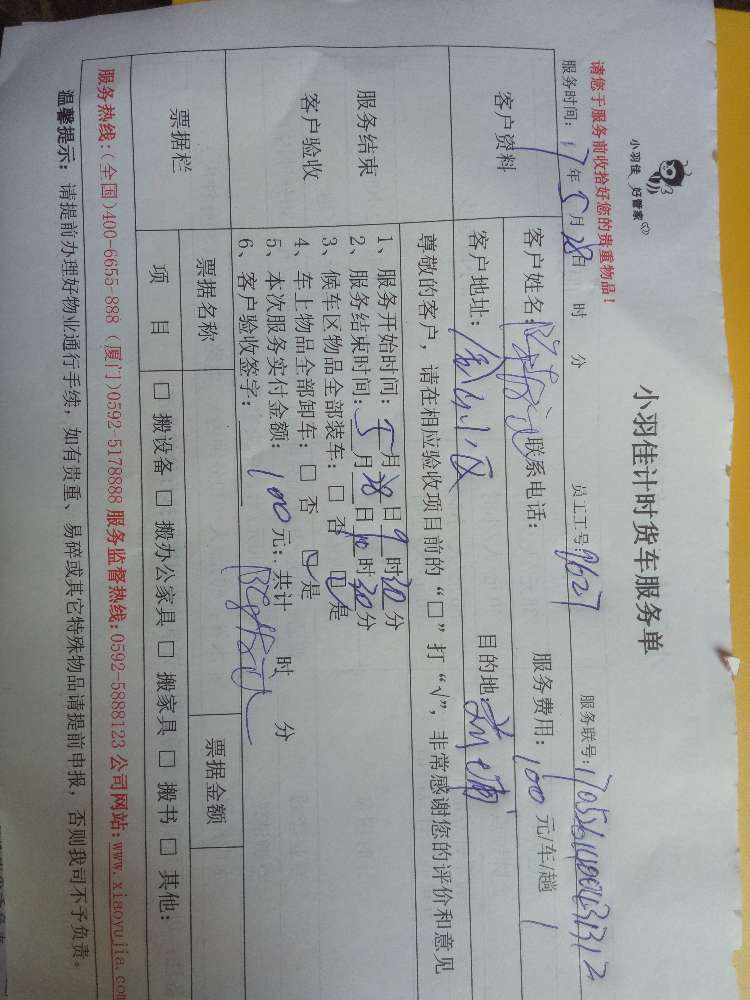 小羽佳 好管家
小羽佳计时货车服务单
请您于服务前收拾好您的贵重物品!
服务时间: 17年5月28日 时 分 员工工号: 9627 服务联号:
客户资料
客户姓名: 联系电话: 服务费用: 100元/车/趟
客户地址: 金山小区 目的地:
尊敬的客户,请在相应验收项目前的“□”打“√”,非常感谢您的评价和意见
服务结束
客户验收
1、服务开始时间: 5月28日9时30分
2、服务结束时间: 5月28日10时30分
3、候车区物品全部装车: □ 否 ☑是
4、车上物品全部卸车: □ 否 ☑是
5、本次服务实付金额: 100元;共计 时 分
6、客户验收签字:
票据栏
票据名称 票据金额
项 目 □ 搬设备 □ 搬办公家具 □ 搬家具 □ 搬书 □ 其他:
服务热线:(全国)400-6655-888 (厦门)0592-5178888 服务监督热线:0592-5888123 公司网站:www.xiaoyujia.com
温馨提示: 请提前办理好物业通行手续,如有贵重、易碎或其它特殊物品请提前申报,否则我司不予负责。